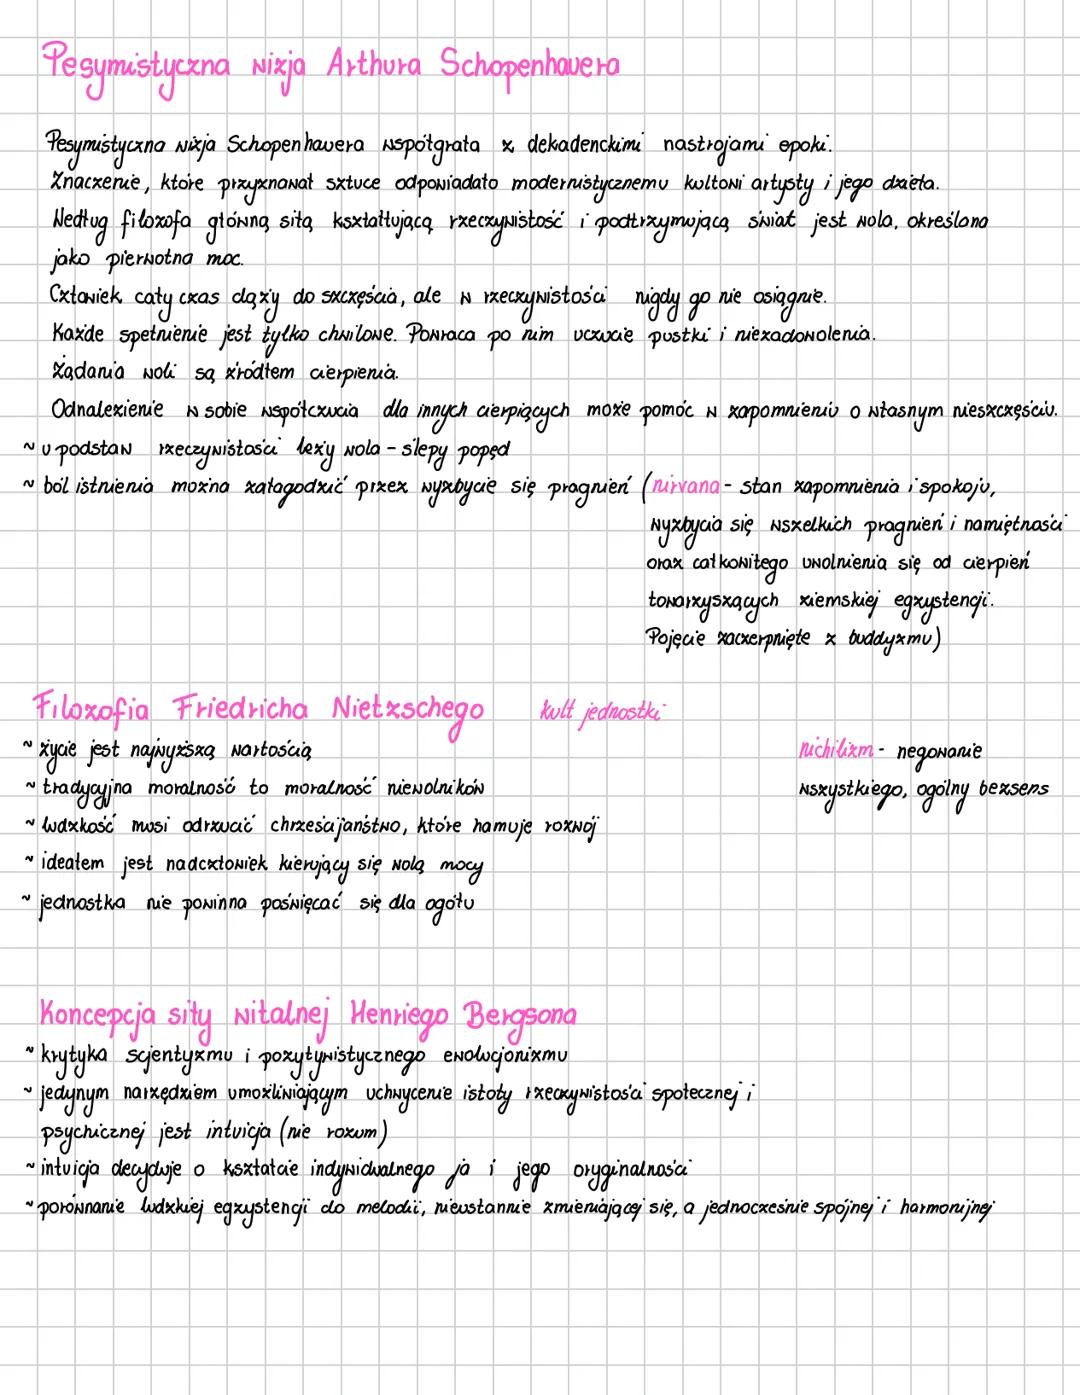 Pesymistyczna wizja Arthura Schopenhauera
Pesymistyczna wizja Schopenhauera współgrała z dekadenckimi nastrojami epoki.
Znaczenie, które przyznawał sztuce odpowiadało modernistycznemu kultowi artysty i jego dzieła.
Według filozofa główną siłą kształtującą rzeczywistość i podtrzymującą świat jest wola, określana
jako pierwotna moc.
Człowiek cały czas dąży do szczęścia, ale w rzeczywistości nigdy go nie osiągnie.
Każde spełnienie jest tylko chwilowe. Powraca po nim uczucie pustki i niezadowolenia.
Żądania woli są źródłem cierpienia.
Odnalezienie w sobie współczucia dla innych cierpiących może pomóc w zapomnieniu o własnym nieszczęściu.
~ u podstaw rzeczywistości leży wola - ślepy popęd
~ ból istnienia można załagodzić przez wyzbycie się pragnień (nirvana - stan zapomnienia i spokoju,
wyzbycia się wszelkich pragnień i namiętności
oraz całkowitego uwolnienia się od cierpień
towarzyszących ziemskiej egzystencji.
Pojęcie zaczerpnięte z buddyzmu)
Filozofia Friedricha Nietzschego kult jednostki
~ życie jest najwyższą wartością
nichilizm - negowanie
wszystkiego, ogólny bezsens
~ tradycyjna moralność to moralność niewolników
~ ludzkość musi odrzucić chrześcijaństwo, które hamuje rozwój
~ ideałem jest nadczłowiek kierujący się wolą mocy
~ jednostka nie powinna poświęcać się dla ogółu
Koncepcja siły witalnej Henriego Bergsona
~ krytyka scjentyzmu i pozytywistycznego ewolucjonizmu
~ jedynym narzędziem umożliwiającym uchwycenie istoty rzeczywistości społecznej i
psychicznej jest intuicja (nie rozum)
~ intuicja decyduje o kształcie indywidualnego ja i jego oryginalności
~ porównanie ludzkiej egzystencji do melodii, nieustannie zmieniającej się, a jednocześnie spójnej i harmonijnej